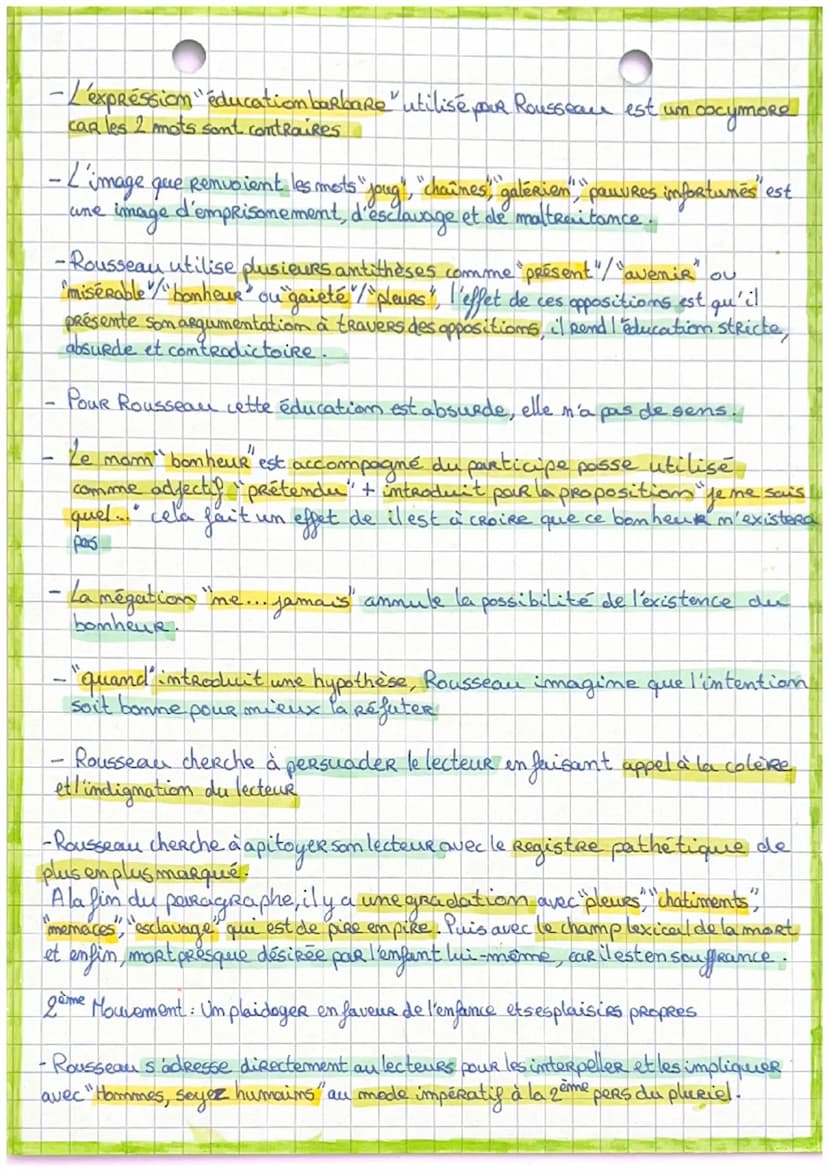 - L'expréssion "éducation barbare" utilisé par Rousseau est un oxymore
car les 2 mots sont contraires
- L'image que renvoient les mots "joug", "chaînes", "galérien", "pauvres infortunés" est
une image d'emprisonement, d'esclavage et de maltraitance.
- Rousseau utilise plusieurs antithèses comme "présent"/"avenir" ou
"misérable"/"bonheur" ou "gaieté"/"pleurs", l'effet de ces oppositions est qu'il
présente son argumentation à travers des oppositions, il rend l'éducation stricte,
absurde et contradictoire.
- Pour Rousseau cette éducation est absurde, elle n'a pas de sens.
- Le nom "bonheur" est accompagné du participe passe utilisé
comme adjectif "prétendu" + introduit par la proposition "je ne sais
quel..." cela fait un effet de il est à croire que ce bonheur n'existera
pas
- La négation "ne... jamais" annule la possibilité de l'existence du
bonheur.
- "quand" introduit une hypothèse, Rousseau imagine que l'intention
soit bonne pour mieux la réfuter
- Rousseau cherche à persuader le lecteur en faisant appel à la colère
et l'indignation du lecteur
- Rousseau cherche à apitoyer son lecteur avec le registre pathétique de
plus en plus marqué.
A la fin du paragraphe, il y a une gradation avec "pleurs", "chatiments",
"menaces", "esclavage" qui est de pire en pire. Puis avec le champ lexical de la mort
et enfin, mort presque désirée par l'enfant lui-même, car il est en souffrance.
2ème Mouvement : Un plaidoyer en faveur de l'enfance et ses plaisirs propres
- Rousseau s'adresse directement au lecteurs pour les interpeller et les impliquer
avec "Hommes, soyez humains" au mode impératif à la 2ème pers du pluriel.